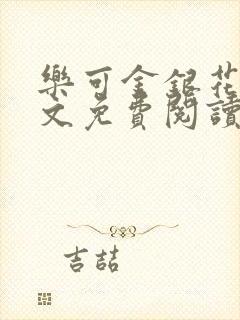 樂可金銀花
文免費閱讀
吉喆